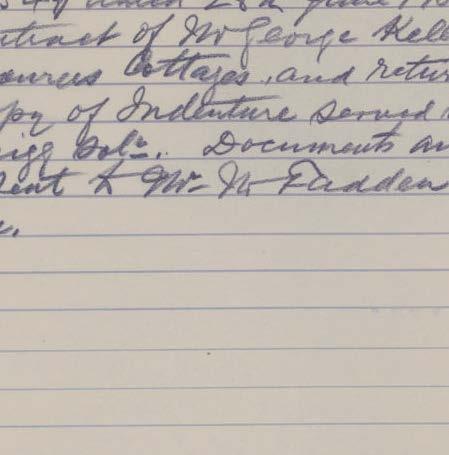 dated 28th June
ntract of Mr George Kell
ourers Cottages, and retur
py of Indenture served
igg Solr. Documents an
sent to Mr. Mc Fadden